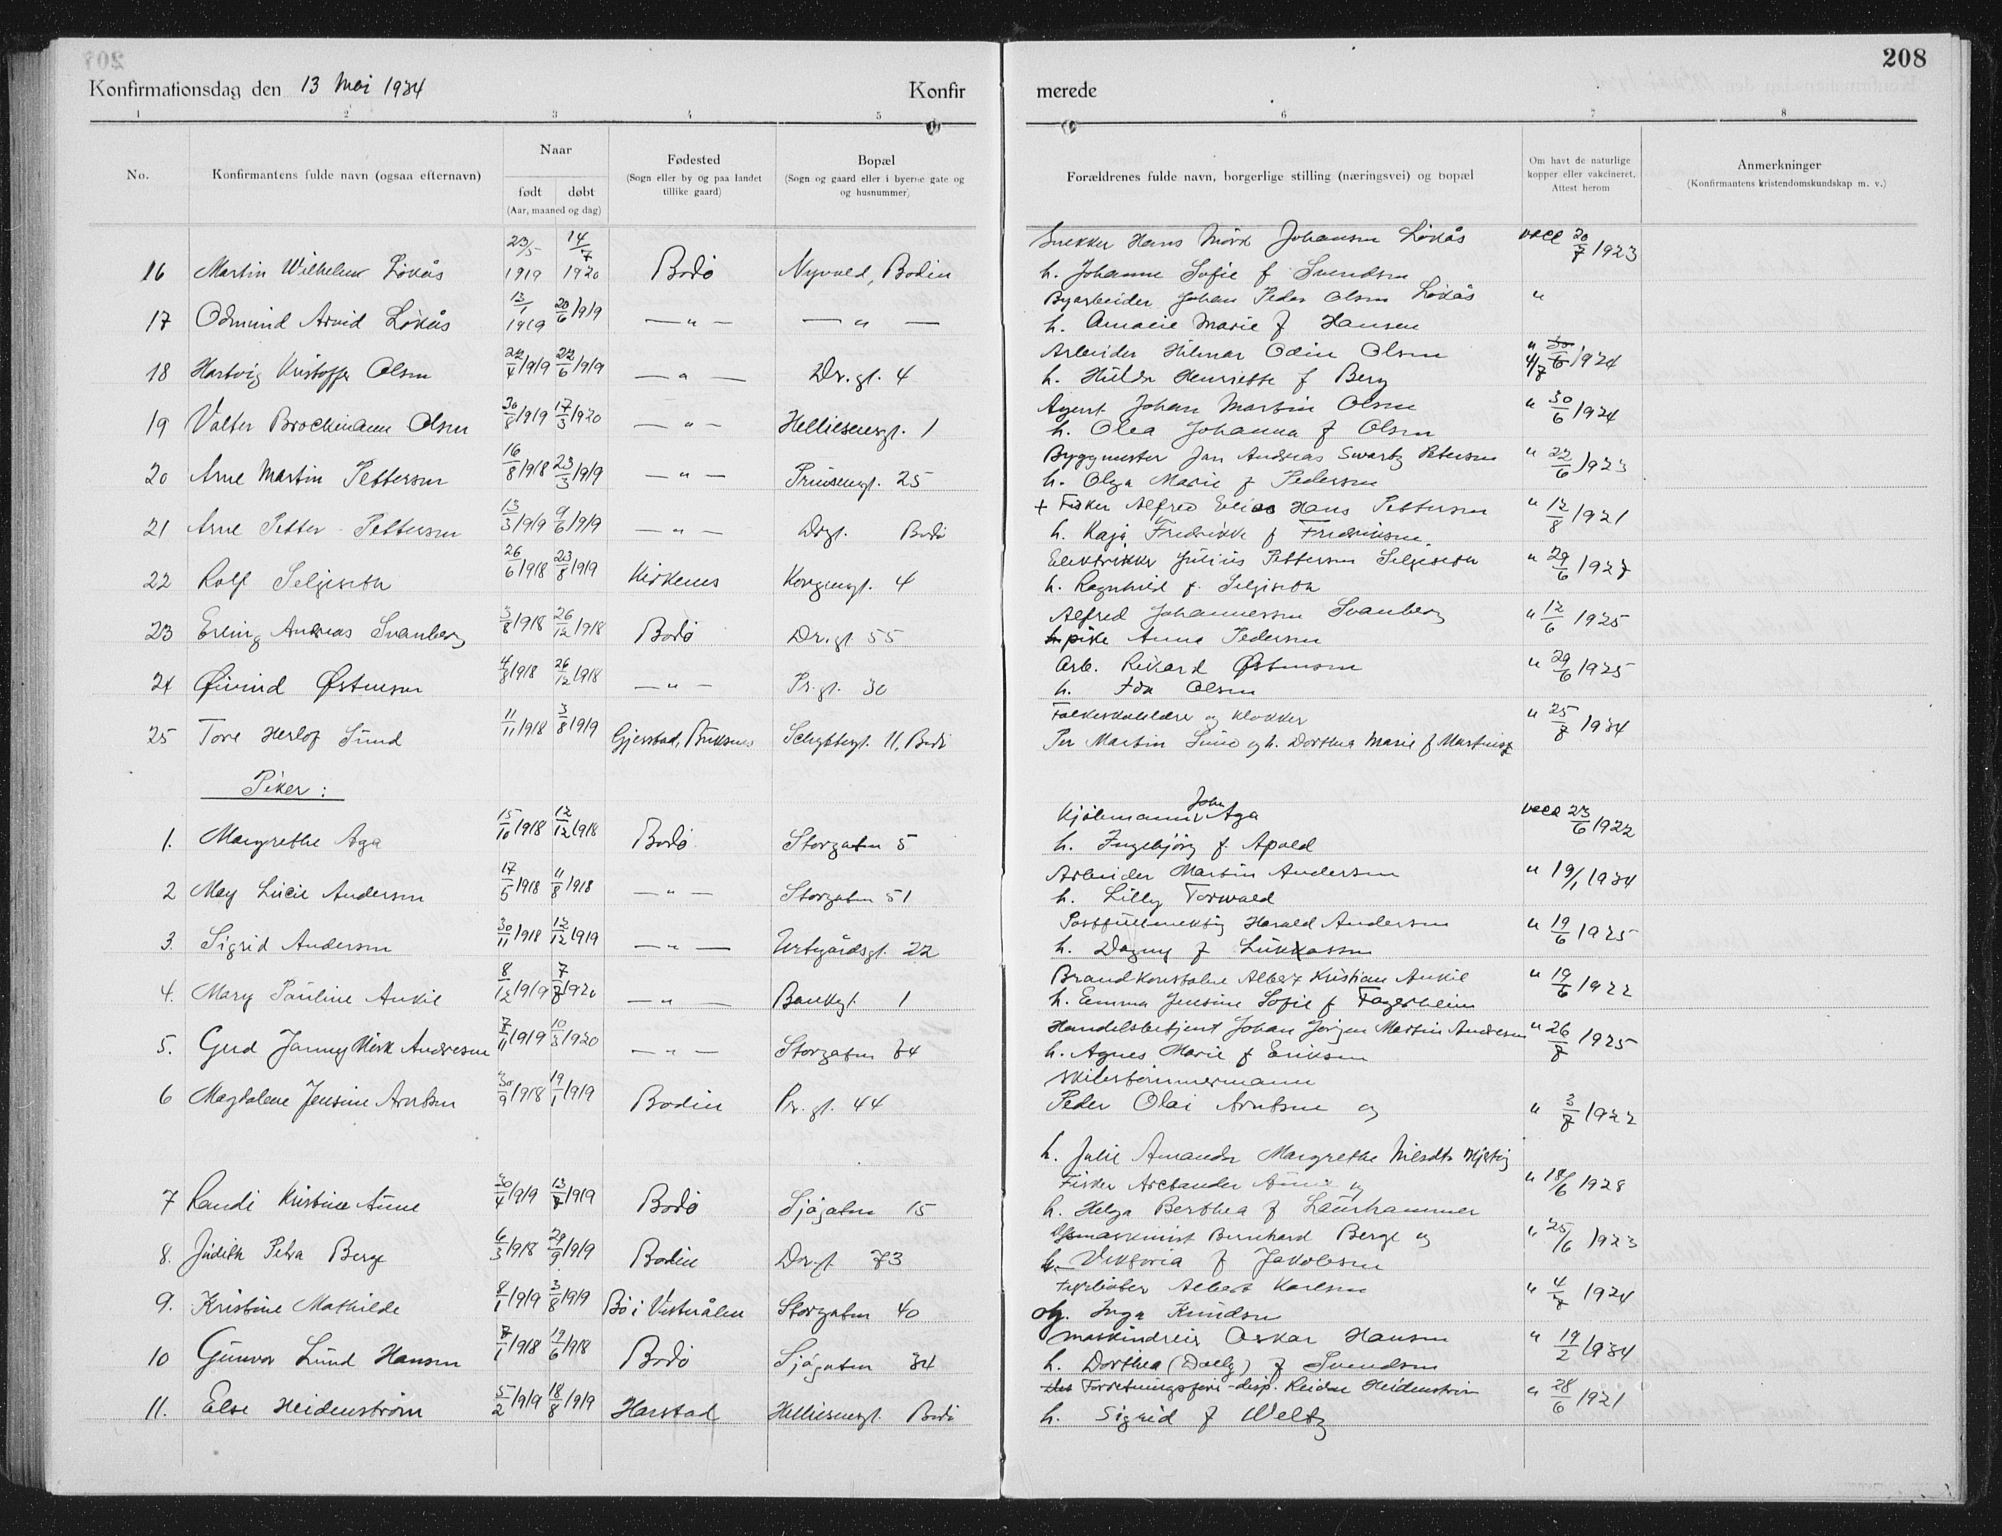 208
Konfirmationsdag den 13 Mai 1934 Konfirmerede
1 2 3 4 5 6 7 8
No. Konfirmantens fulde navn (ogsaa efternavn) Naar født døbt (Aar, maaned og dag) Fødested (Sogn eller by og paa landet tillike gaard) Bopæl (Sogn og gaard eller i byerne gate og og husnummer) Forældrenes fulde navn, borgerlige stilling (næringsvei) og bopæl Om havt de naturlige kopper eller vakcineret. Attest herom Anmerkninger (Konfirmantens kristendomskundskap m. v.)
Snekker Hans Johansen Løkås vacc 20/7 1923
16 Martin Wilhelm Løkås 23/5 1919 14/7 1920 Bodø Nyvold, Bodin h. Johanne Sofie f Svendsen
Byarbeider Johan Peder Olsen Løkås "
17 Odmund Arvid Løkås 13/1 1919 20/6 1919 — " — — " — h. Amalie Marie f Hansen
Arbeider Hilmar Odin Olsen " 30/6 1924
18 Hartvig Kristoffer Olsen 22/4 1919 22/6 1919 — " — Dr.gt. 4 h. Hulda Henriette f Berg 4/7
Agent Johan Martin Olsen " 30/6 1924
19 Valter Brockmann Olsen 30/8 1919 17/3 1920 — " — Helliesensgt. 1 h. Olea Johanna f Olsen
Byggmester Jan Andreas Swartz Petersen " 22/6 1923
20 Arne Martin Pettersen 16/8 1918 23/3 1919 — " — Prinsensgt. 25 h. Olga Marie f Pedersen
+ Fisker Alfred Elias Hans Pettersen " 12/8 1921
21 Arne Petter Pettersen 13/3 1919 9/6 1919 — " — Drgt. Bodø h. Kaja Fredrikke f Fredriksen
Elektriker Julius Pettersen Seljeseth " 29/6 1927
22 Rolf Seljeseth 26/6 1918 23/8 1919 Kirkenes Kongensgt. 4 h. Ragnhild f. Seljeseth
Alfred Johannessen Svanberg " 12/6 1925
23 Erling Andreas Svanberg 3/8 1918 26/12 1918 Bodø Dr.gt 55 pike Anna Pedersen
Arb. Rikard Østensen " 29/6 1925
24 Øivind Østensen 4/8 1918 26/12 1918 — " — Pr.gt. 30 h. Ida Olsen
Folkeskolelærer og klokker " 25/7 1934
25 Tore Herlof Sund 11/11 1918 3/8 1919 Gjerstad, Buksnes Schyttesgt. 11, Bodø Per Martin Sund og h. Dorthea Marie f
Piker :
Kjøbmann John Aga vacc 23/6 1922
1. Margrethe Aga 15/10 1918 12/12 1918 Bodø Storgaten 5 h. Ingebjørg f Apold
Arbeider Martin Andersen " 19/1 1934
2 May Lucie Andersen 17/5 1918 11/8 1918 — " — Storgaten 51 h. Lilly Torwald
Postfullmektig Harald Andersen " 19/6 1925
3. Sigrid Andersen 30/11 1918 12/12 1919 — " — Urtegårdsgt. 22 h. Dagny f Lukkassen
Brandkonstabel Albert Kristian Ankil " 19/6 1922
4. Mary Pauline Ankil 8/12 1919 7/8 1920 — " — Bankgt. 1 h. Emma Jensine Sofie f Fagerheim
Handelsbetjent Johan Jørgen Martin Andresen " 26/7 1925
5. Gerd Jenny Andresen 7/11 1919 10/3 1920 — " — Storgaten 74 h. Agnes Marie f Eriksen
Skibstømmermann
6 Magdalene Jensine Arntsen 30/9 1918 19/1 1919 Bodin Pr.gt. 44 Peder Olai Arntsen og " 3/7 1922
h. Julie Amanda Margrethe
Fisker Aune og " 18/6 1928
7 Randi Kristine Aune 30/4 1919 13/7 1919 Bodø Sjøgaten 15 h. Helga Berthea f Laurhammer
Bernhard Berge og " 25/6 1923
8. Judith Petra Berge 6/3 1918 29/9 1919 Bodin Dr.gt 73 h. Viktoria f Jakobsen
Albert Karlsen " 4/7 1924
9. Kristine Mathilde 8/1 1919 3/8 1919 Bø i Vesterålen Storgaten 40 og Inga Knudsen
Maskindreier Oskar Hansen " 19/2 1934
10 Gunvor Lund Hansen 7/1 1918 19/6 1918 Bodø Sjøgaten 34 h. Dorthea (Dolly) f Svendsen
Forretningsfører-disp. Reidar Heidenstrøm " 28/6 1921
11. Else Heidenstrøm 5/2 1919 18/8 1919 Harstad Helliesensgt. Bodø h. Sigrid f Weltz